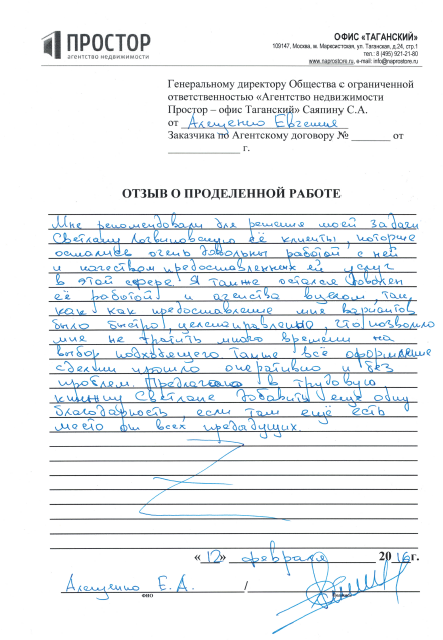 ПРОСТОР
агентство недвижимости
ОФИС «ТАГАНСКИЙ»
109147, Москва, м. Марксистская, ул. Таганская, д.24, стр.1
тел.: 8 (495) 921-21-80
www.naprostore.ru, e-mail: info@naprostore.ru
Генеральному директору Общества с ограниченной
ответственностью «Агентство недвижимости
Простор – офис Таганский» Саяпину С.А.
от Алещенко Евгения
Заказчика по Агентскому договору № _______ от
_____________ г.
ОТЗЫВ О ПРОДЕЛЕННОЙ РАБОТЕ
Мне рекомендовали для решения моей задачи
Светлану Логвиновскую её клиенты, которые
остались очень довольны работой с ней
и качеством предоставленных ей услуг
в этой сфере. Я также остался доволен
её работой и агенства вцелом, так
как как предоставление мне вариантов
было быстро, целенаправленно, что позволило
мне не тратить много времени на
выбор подходящего. Также всё оформление
сделки прошло оперативно и без
проблем. Предлагаю в трудовую
книжку Светлане добавить ещё одну
благодарность, если там ещё есть
место от всех предыдущих.
«12» февраля 2016 г.
Алещенко Е. А. /
ФИО